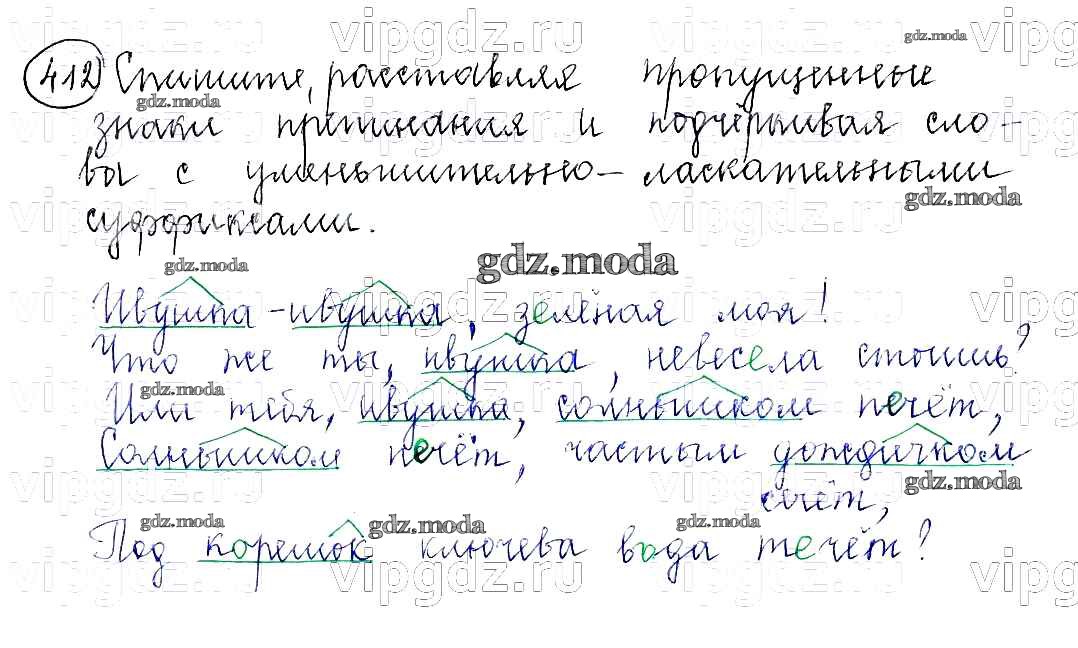 412 Спишите, расставляя пропущенные
знаки препинания и подчёркивая сло-
вы с уменьшительно-ласкательными
суффиксами.
Ивушка-ивушка, зелёная моя!
Что же ты, ивушка, невесела стоишь?
Или тебя, ивушка, солнышком печёт,
Солнышком печёт, частым дождичком
сечёт,
Под корешок ключева вода течёт?
vipgdz.ru
gdz.moda